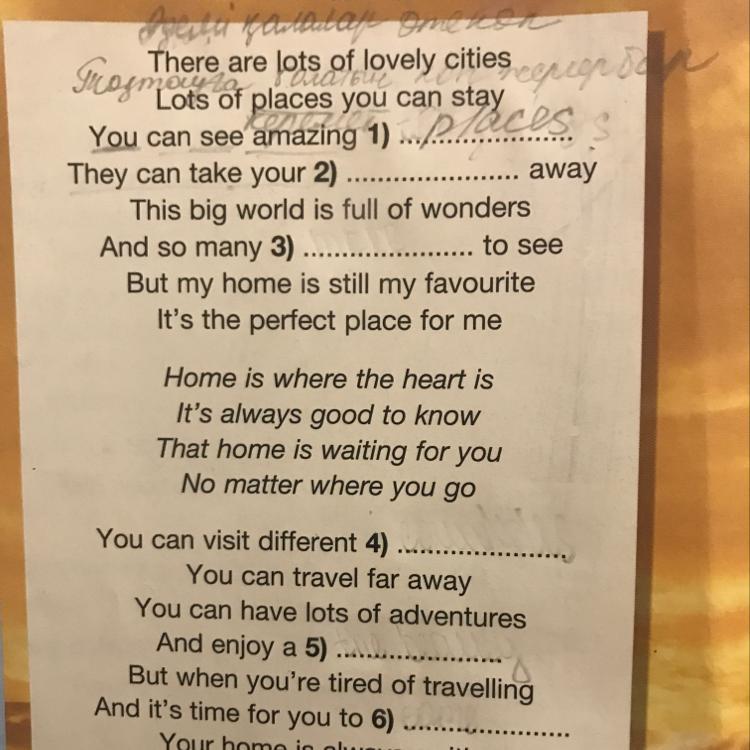 әдемі қалалар өте көп
There are lots of lovely cities
Тоқтауға болатын көп жерлер бар
Lots of places you can stay
керемет
You can see amazing 1) ...places...
They can take your 2) ...................... away
This big world is full of wonders
And so many 3) ...................... to see
But my home is still my favourite
It's the perfect place for me
Home is where the heart is
It's always good to know
That home is waiting for you
No matter where you go
You can visit different 4) ......................
You can travel far away
You can have lots of adventures
And enjoy a 5) ......................
But when you're tired of travelling
And it's time for you to 6) ......................
Your home is always